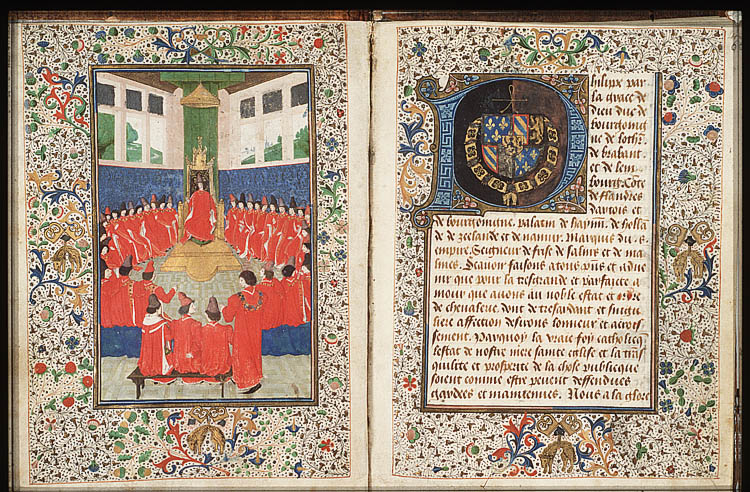 hilippe par
la grace de
dieu duc de
bourgoing͠
ne de lothr͠
de brabant
et de lem
bourg Cōte
de flandres
dartois et
de bourgoingne. palatin de haynn͠. de holla͠
de de zeelande et de namur. Marquis du s͠
empire Seigneur de frise de salins et de ma
lines. Scauoir faisons a tous pn͠s et adue
nir que pour la tresgrande et parfaicte a
mour que auons au noble estat et ordre
de cheualerie. dont de tresardant et singu
liere affection desirons lonneur et accrois
sement. Parquoy la vraie foy catholicq͠
lestat de nostre mere sainte eglise et la tra͠
quilite et prosperite de la chose publicque
soient comme estre peuent deffendues
gardees et maintenues. Nous a la gloire